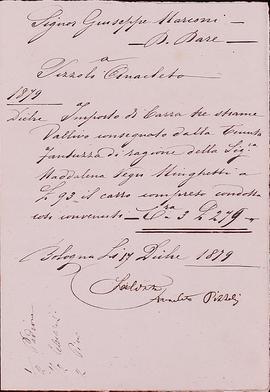 Signor Giuseppe Marconi
D. Dare
a
Pizzoli Anacleto
1879
Dicbre Importo di Carra tre strame
Vallivo consegnato dalla Tenuta
Fantuzza di ragione della Sig.ra
Maddalena Segni Minghetti a
£ 93 il carro compreso condotta
così convenuto — Cra 3 £ 279
Bologna Li 17 Dicbre 1879
Saldato
Anacleto Pizzoli